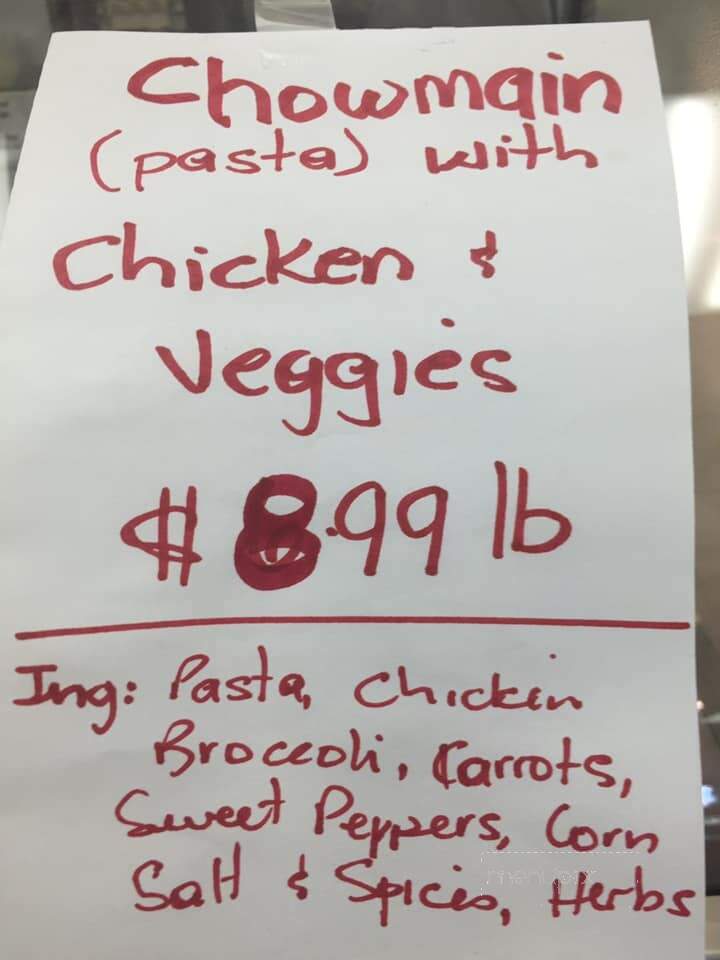 Chowmain
(pasta) with
Chicken &
Veggies
$8.99 lb
Ing: Pasta, Chickin
Broccoli, Carrots,
Sweet Peppers, Corn
Salt & Spices, Herbs
menupix